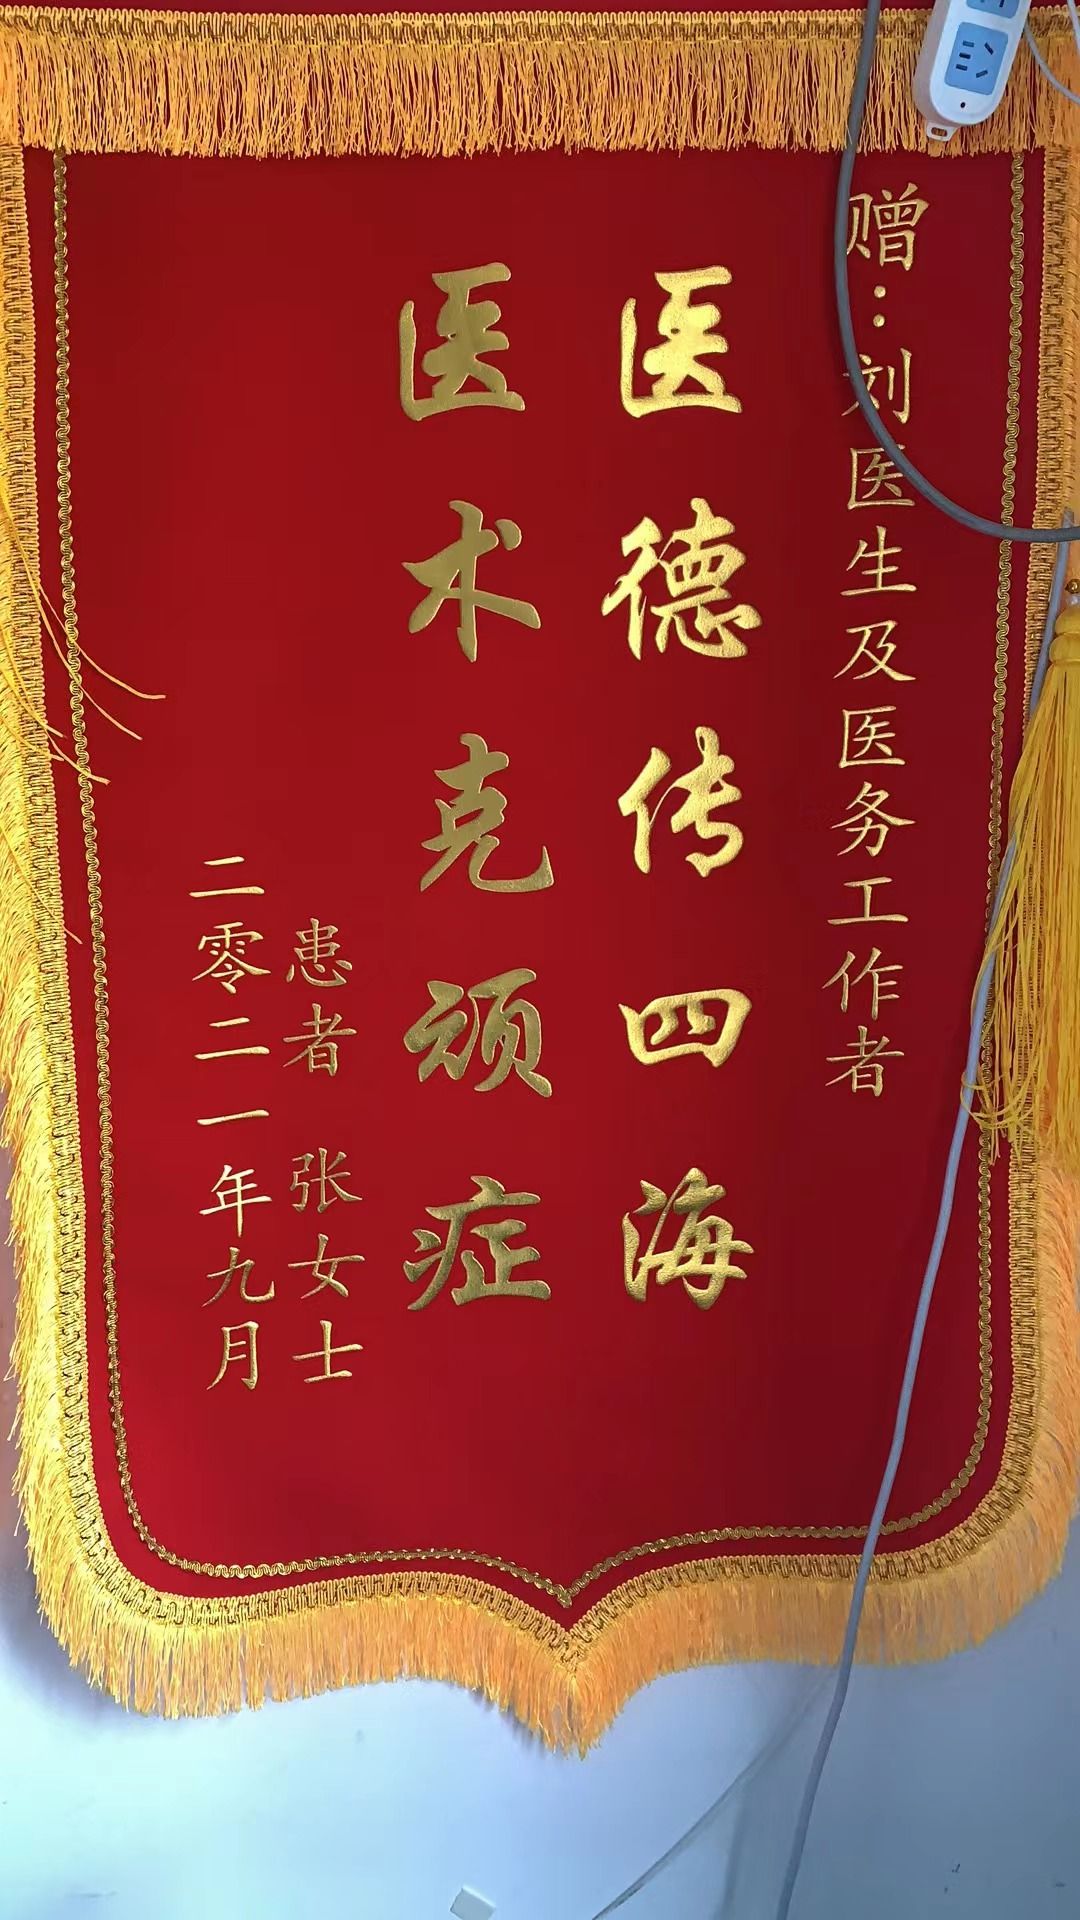 赠：刘医生及医务工作者
医德传四海
医术克顽症
患者 张女士
二零二一年九月